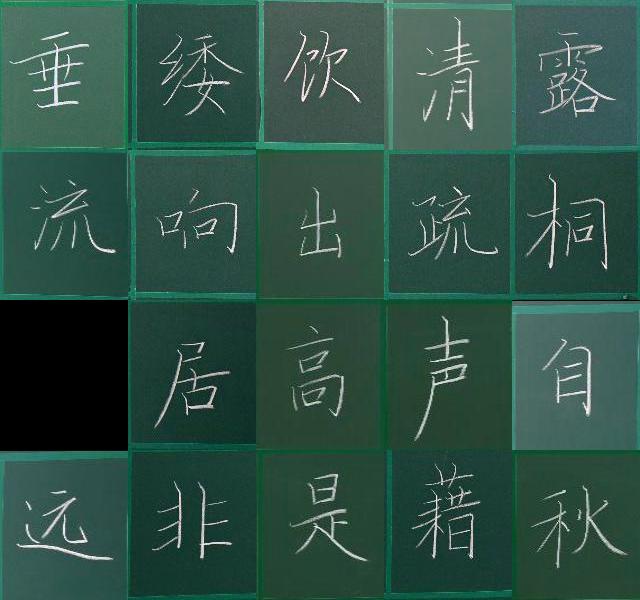 垂緌饮清露
流响出疏桐
居高声自
远非是藉秋